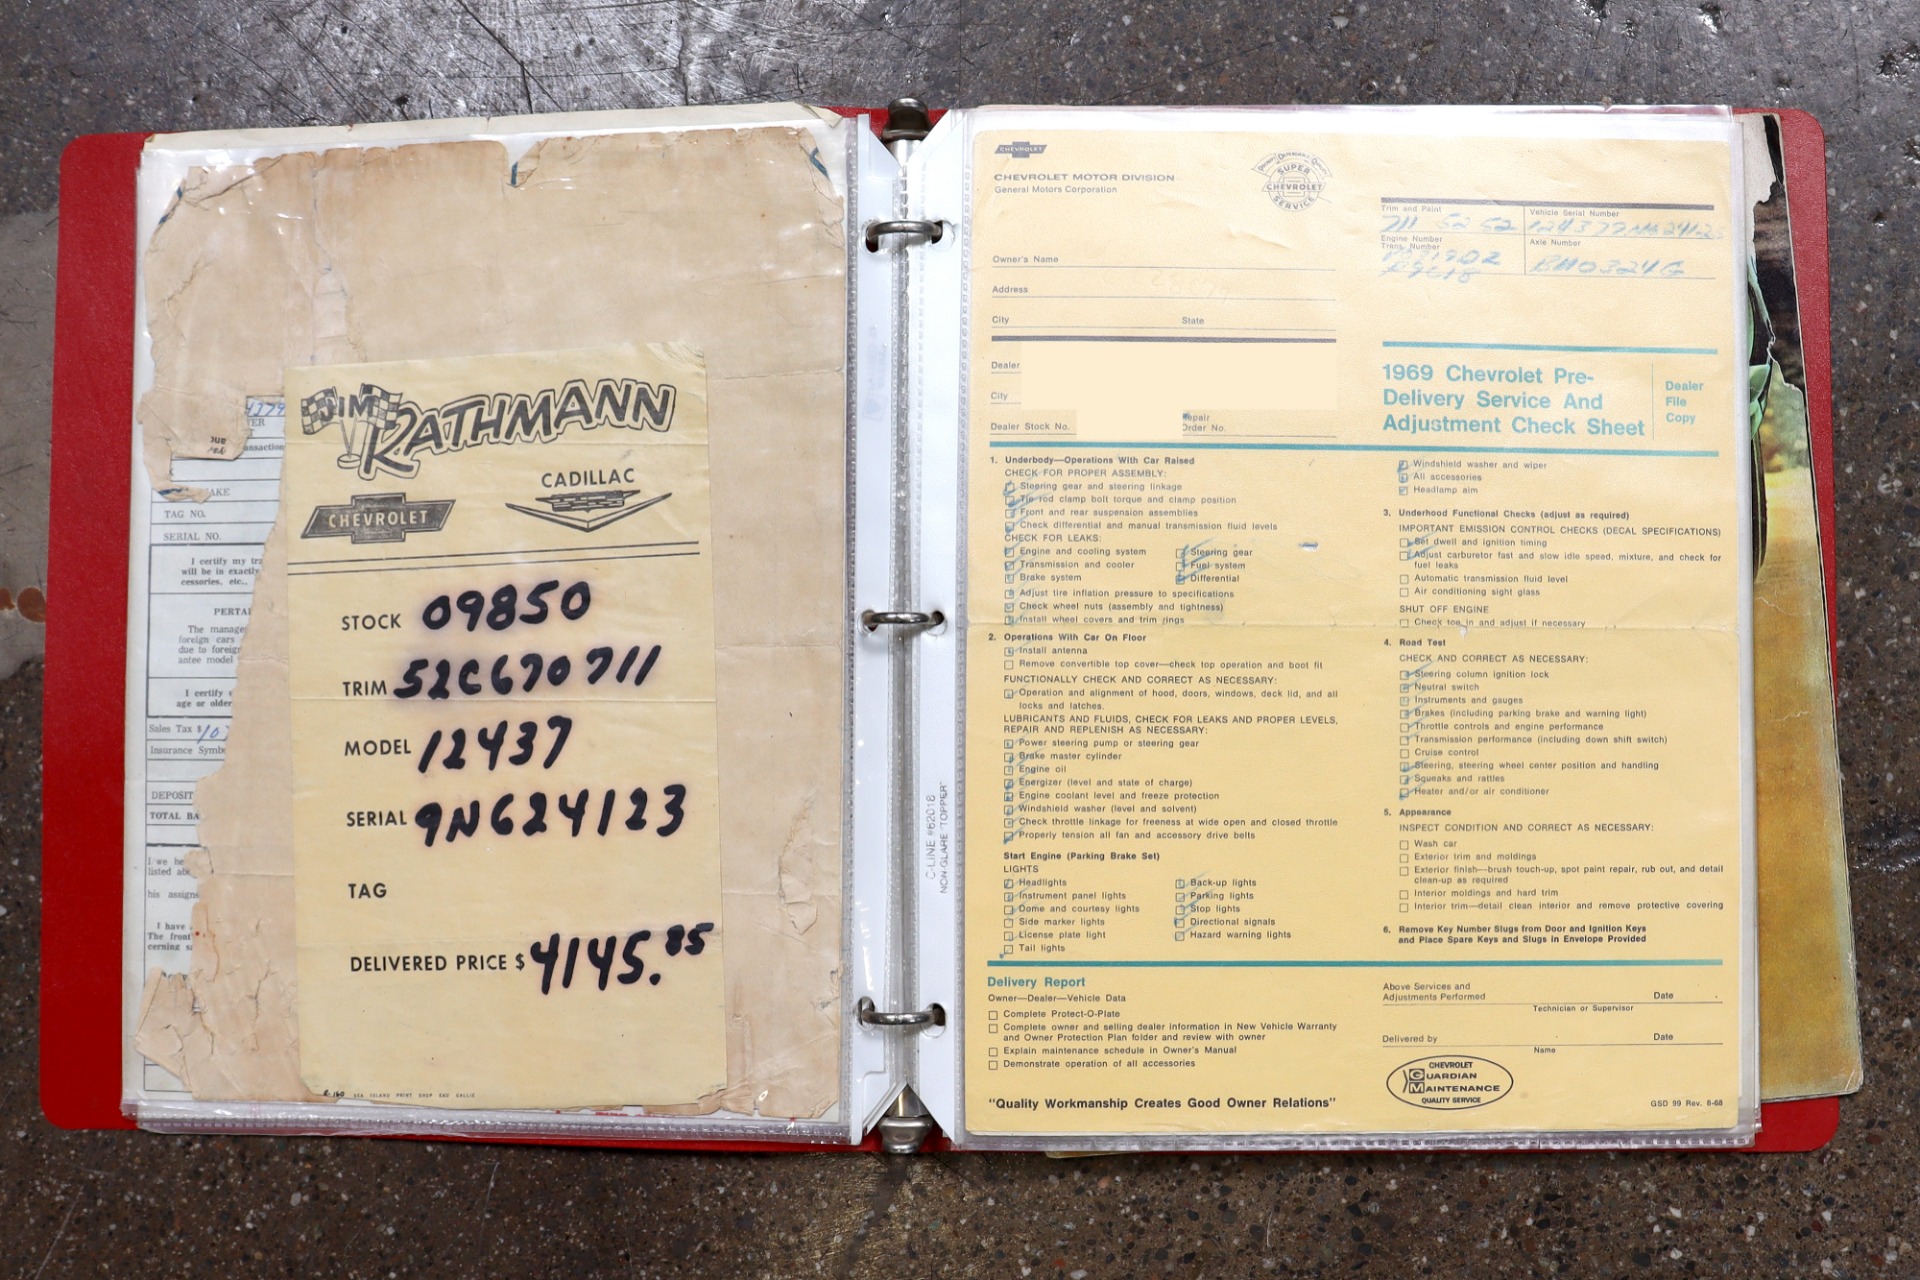 4379
TAG NO.
SERIAL NO.
I certify my
will be in exactly
cessories, etc.,
The
foreign cars
due to foreign
antee model
I certify
age or older
Sales Tax $
Insurance
DEPOSIT
TOTAL
listed
his
I have
The front
JIM RATHMANN
CHEVROLET
CADILLAC
STOCK 09850
TRIM 52C670711
MODEL 12437
SERIAL 9N624123
TAG
DELIVERED PRICE $ 4145.85
SEA ISLAND PRINT SHOP EAU GALLIE
C-LINE #62018
NON-GLARE "TOPPER"
CHEVROLET
CHEVROLET MOTOR DIVISION
General Motors Corporation
SUPER
CHEVROLET
SERVICE
Trim and Paint
711 52 52
Vehicle Serial Number
Engine Number
Trans. Number
Axle Number
BH0324G
Owner's Name
Address
City State
Dealer
City
Dealer Stock No. Repair
Order No.
1969 Chevrolet Pre-
Delivery Service And
Adjustment Check Sheet
Dealer
File
Copy
1. Underbody—Operations With Car Raised
CHECK FOR PROPER ASSEMBLY:
Steering gear and steering linkage
Tie rod clamp bolt torque and clamp position
Front and rear suspension assemblies
Check differential and manual transmission fluid levels
CHECK FOR LEAKS:
Engine and cooling system Steering gear
Transmission and cooler Fuel system
Brake system Differential
Adjust tire inflation pressure to specifications
Check wheel nuts (assembly and tightness)
Install wheel covers and trim rings
2. Operations With Car On Floor
Install antenna
Remove convertible top cover—check top operation and boot fit
FUNCTIONALLY CHECK AND CORRECT AS NECESSARY:
Operation and alignment of hood, doors, windows, deck lid, and all
locks and latches.
LUBRICANTS AND FLUIDS, CHECK FOR LEAKS AND PROPER LEVELS,
REPAIR AND REPLENISH AS NECESSARY:
Power steering pump or steering gear
Brake master cylinder
Engine oil
Energizer (level and state of charge)
Engine coolant level and freeze protection
Windshield washer (level and solvent)
Check throttle linkage for freeness at wide open and closed throttle
Properly tension all fan and accessory drive belts
Start Engine (Parking Brake Set)
LIGHTS
Headlights Back-up lights
Instrument panel lights Parking lights
Dome and courtesy lights Stop lights
Side marker lights Directional signals
License plate light Hazard warning lights
Tail lights
Windshield washer and wiper
All accessories
Headlamp aim
3. Underhood Functional Checks (adjust as required)
IMPORTANT EMISSION CONTROL CHECKS (DECAL SPECIFICATIONS)
Set dwell and ignition timing
Adjust carburetor fast and slow idle speed, mixture, and check for
fuel leaks
Automatic transmission fluid level
Air conditioning sight glass
SHUT OFF ENGINE
Check toe in and adjust if necessary
4. Road Test
CHECK AND CORRECT AS NECESSARY:
Steering column ignition lock
Neutral switch
Instruments and gauges
Brakes (including parking brake and warning light)
Throttle controls and engine performance
Transmission performance (including down shift switch)
Cruise control
Steering, steering wheel center position and handling
Squeaks and rattles
Heater and/or air conditioner
5. Appearance
INSPECT CONDITION AND CORRECT AS NECESSARY:
Wash car
Exterior trim and moldings
Exterior finish—brush touch-up, spot paint repair, rub out, and detail
clean-up as required
Interior moldings and hard trim
Interior trim—detail clean interior and remove protective covering
6. Remove Key Number Slugs from Door and Ignition Keys
and Place Spare Keys and Slugs in Envelope Provided
Delivery Report
Owner—Dealer—Vehicle Data
Complete Protect-O-Plate
Complete owner and selling dealer information in New Vehicle Warranty
and Owner Protection Plan folder and review with owner
Explain maintenance schedule in Owner's Manual
Demonstrate operation of all accessories
"Quality Workmanship Creates Good Owner Relations"
Above Services and
Adjustments Performed Date
Technician or Supervisor
Delivered by Date
Name
CHEVROLET
GUARDIAN
MAINTENANCE
QUALITY SERVICE
GSD 99 Rev. 8-68